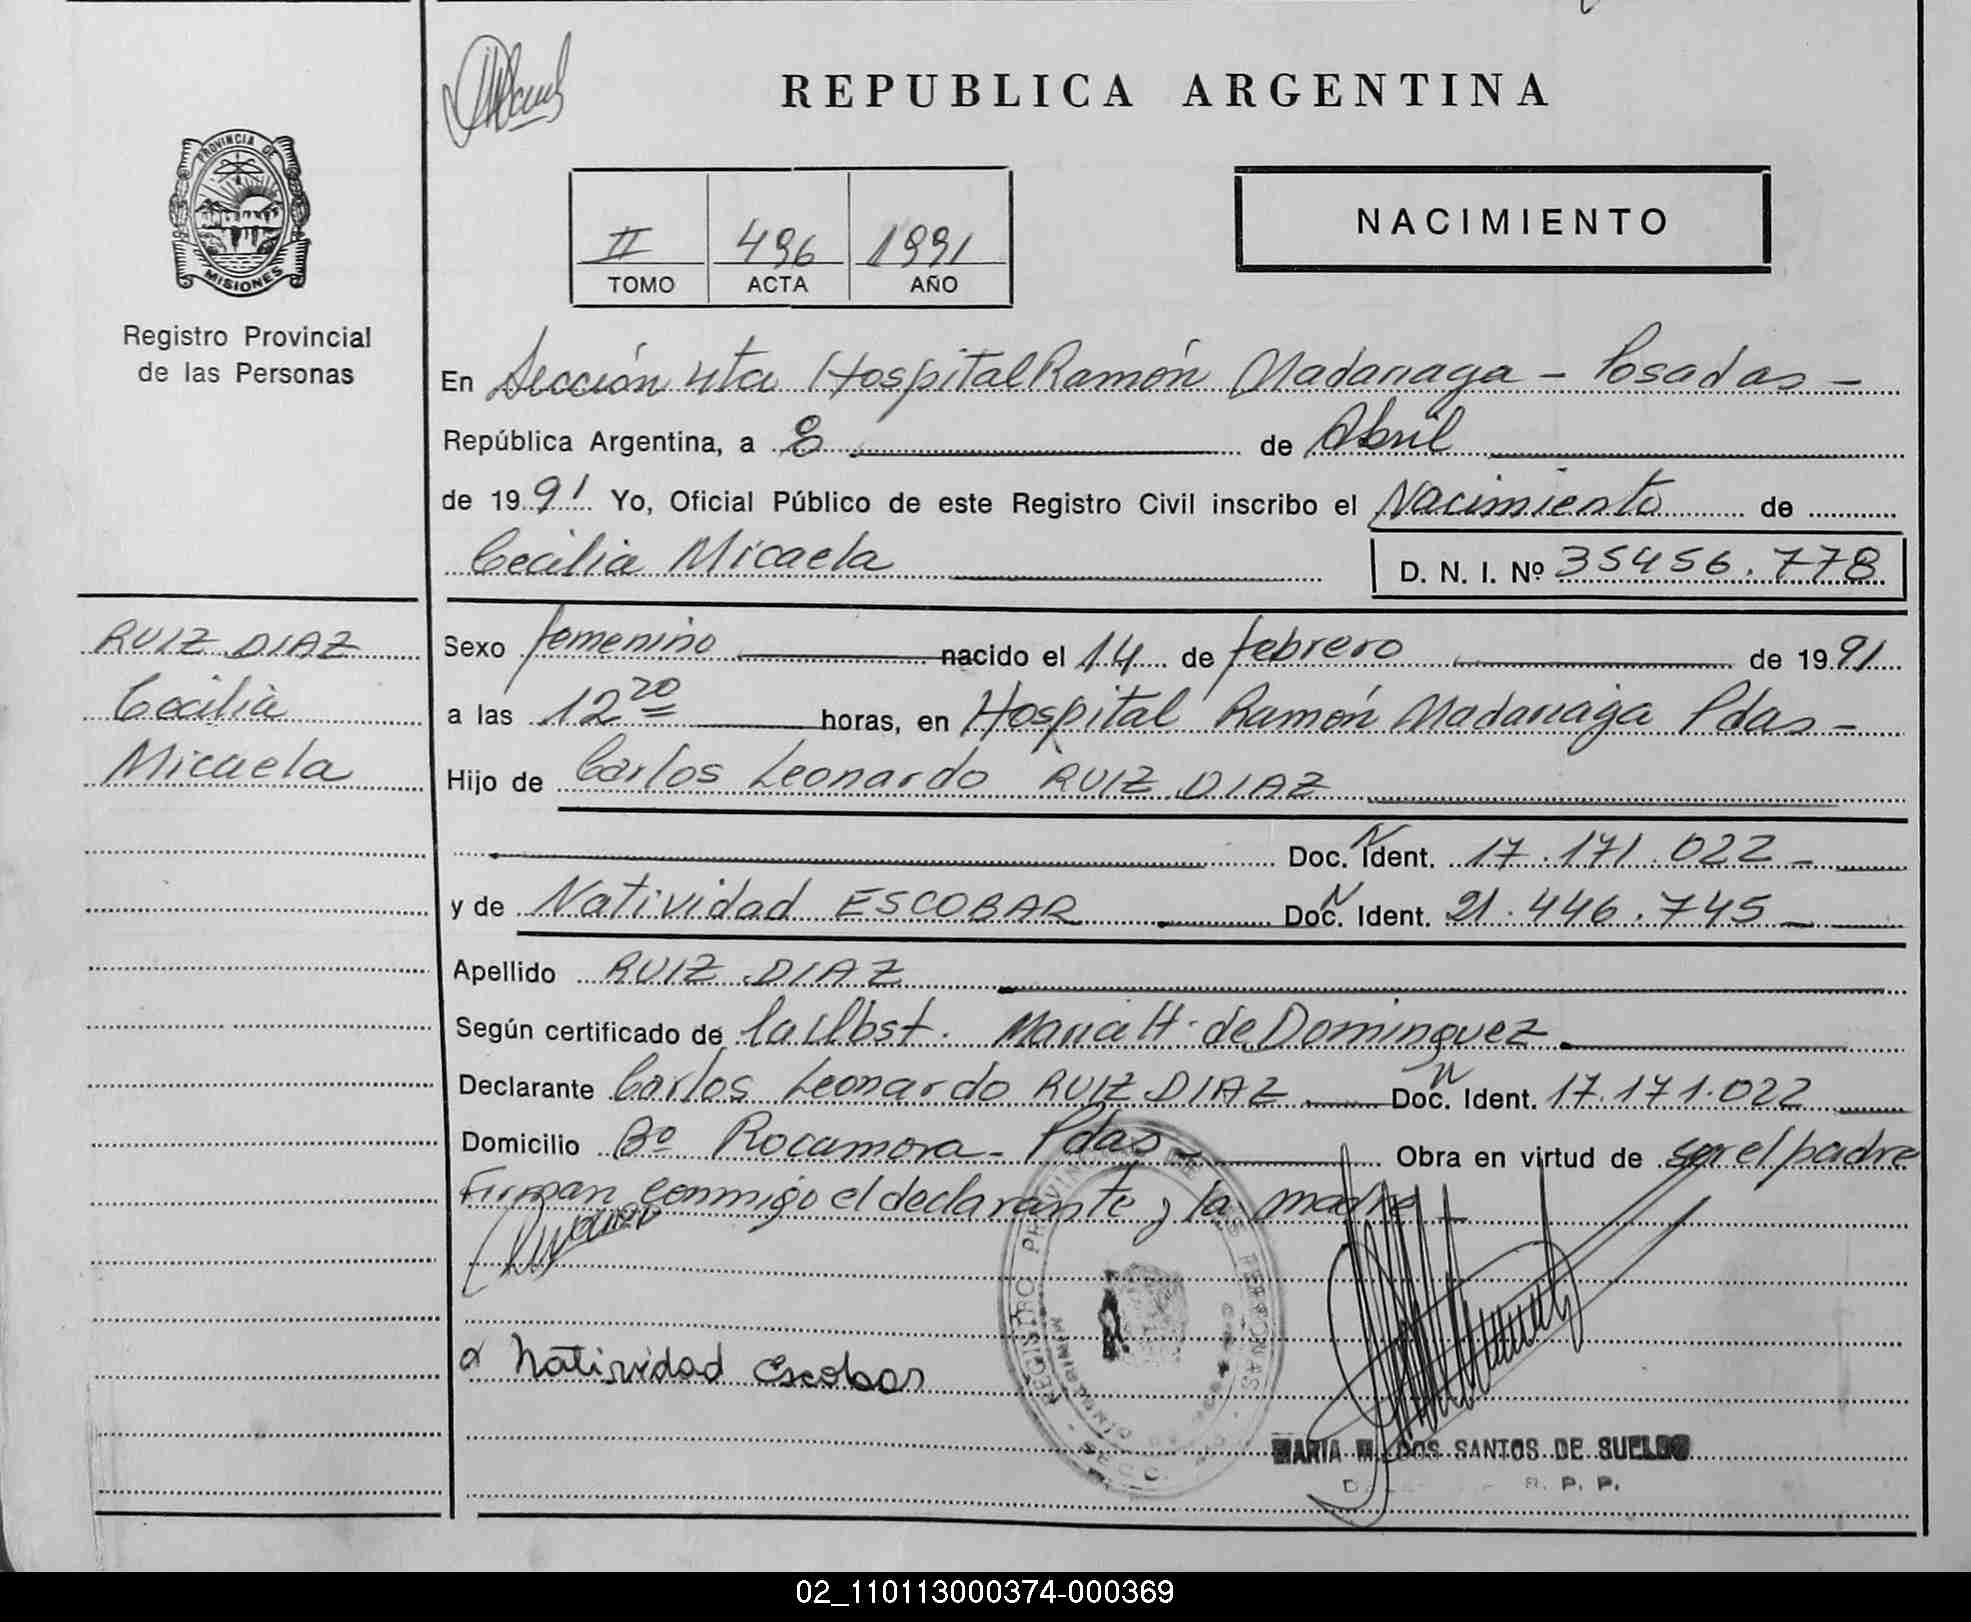 REPUBLICA ARGENTINA
PROVINCIA DE
MISIONES
Registro Provincial
de las Personas
II 496 1991
TOMO ACTA AÑO
NACIMIENTO
En Sección 4ta Hospital Ramón Madariaga - Posadas -
República Argentina, a 8 de Abril
de 1991 Yo, Oficial Público de este Registro Civil inscribo el Nacimiento de
Cecilia Micaela D. N. I. Nº 35456.778
RUIZ DIAZ
Cecilia
Micaela
Sexo femenino nacido el 14 de febrero de 1991
a las 12 20 horas, en Hospital Ramón Madariaga Pdas -
Hijo de Carlos Leonardo RUIZ DIAZ
Doc. N Ident. 17.171.022 -
y de Natividad ESCOBAR Doc. N Ident. 21.446.745 -
Apellido RUIZ DIAZ
Según certificado de la Obst. Maria H. de Dominguez
Declarante Carlos Leonardo RUIZ DIAZ Doc. N Ident. 17.171.022
Domicilio Bº Rocamora - Pdas - Obra en virtud de ser el padre
Firman conmigo el declarante y la madre -
Natividad Escobar
REGISTRO PROVINCIAL DE LAS PERSONAS
MARIA M. DOS SANTOS DE SUELDO
R. P. P.
02_110113000374-000369